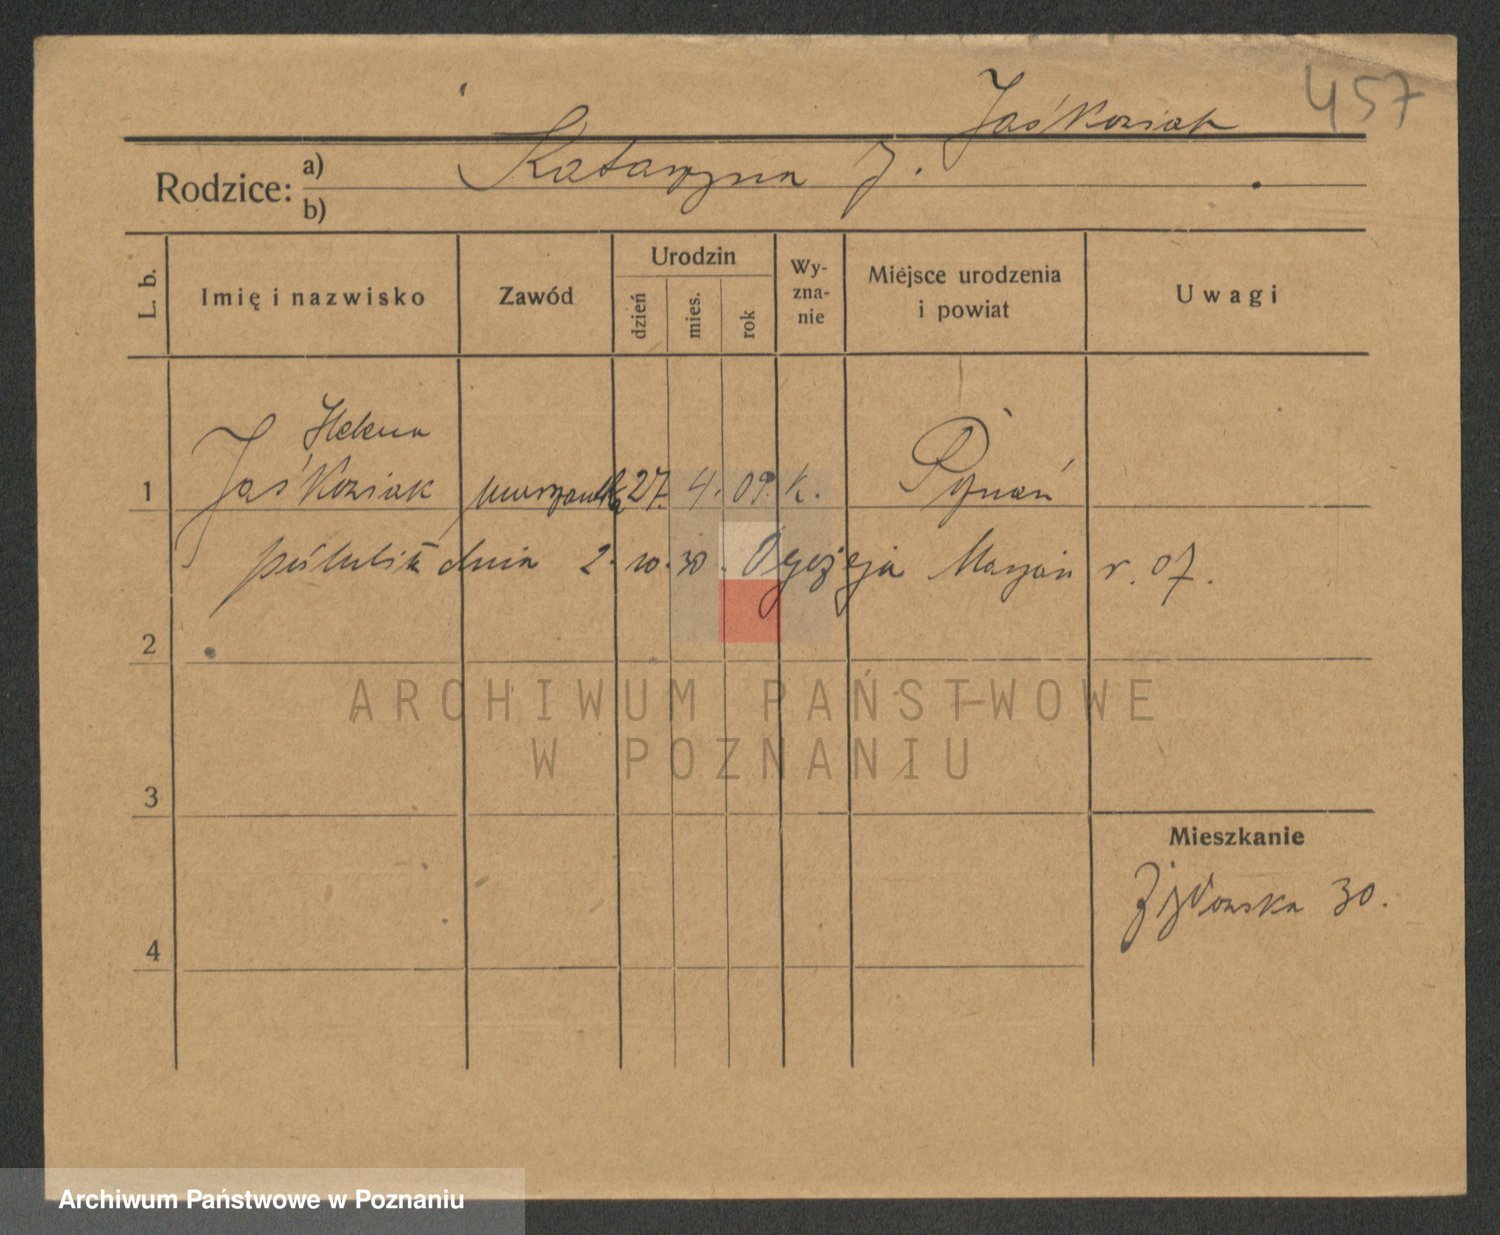 457
Jaśkowiak
Rodzice: a) Katarzyna J.
b)
L. b.
Imię i nazwisko
Zawód
Urodzin
dzień
mies.
rok
Wy-
zna-
nie
Miejsce urodzenia
i powiat
Uwagi
Helena
1 Jaśkowiak 27. 4. 09. k. Poznań
dnia 2. 10. 30. Marjan r. 07.
2
ARCHIWUM PAŃSTWOWE
W POZNANIU
3
Mieszkanie
Żydowska 30.
4
Archiwum Państwowe w Poznaniu